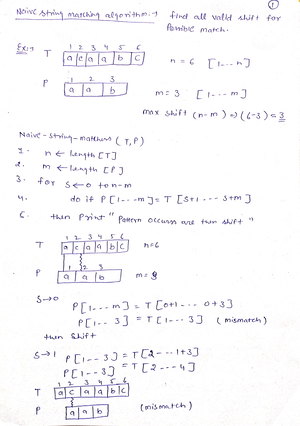 ①
Naive String matching algorithm:→ find all valid shift for
possible match.
Ex:→ T
1 2 3 4 5 6
a c a a b c
n = 6 [1---n]
P
1 2 3
a a b
m = 3 [1---m]
max shift (n-m) => (6-3) => 3
Naive-String-matchers (T,P)
1. n ← length [T]
2. m ← length [P]
3. for S ← 0 to n-m
4. do if P[1---m] = T[S+1---S+m]
5. then Print "Pattern occurs are two shift"
1 2 3 4 5 6
T a c a a b c n=6
1 2 3
P a a b m=3
S→0
P[1---m] = T[0+1---0+3]
P[1---3] = T[1---3] (mismatch)
then shift
S→1 P[1--3] = T[2---1+3]
P[1--3] = T[2---4]
1 2 3 4 5 6
T a c a a b c
P a a b (mismatch)